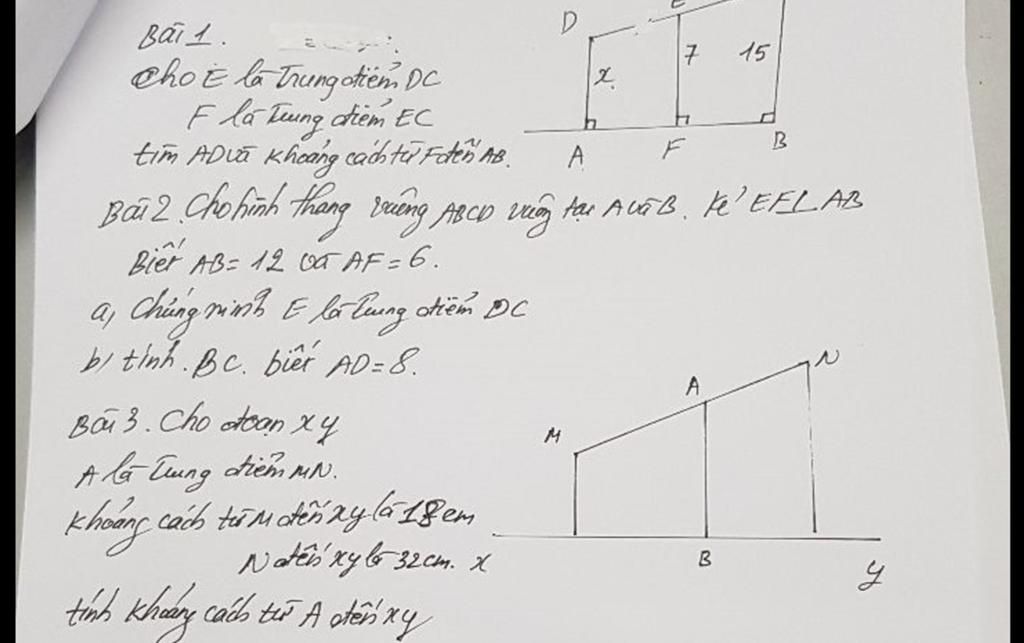 Bài 1.
Cho E là Trung điểm DC
F là Trung điểm EC
tìm AD và khoảng cách từ F đến AB.
D E
x 7 15
A F B
Bài 2. Cho hình thang vuông ABCD vuông tại A và B. kẻ EF⊥AB
Biết AB = 12 và AF = 6.
a, Chứng minh E là Trung điểm DC
b, tính BC. biết AD = 8.
Bài 3. Cho đoạn xy
A là Trung điểm MN.
khoảng cách từ M đến xy là 18cm
N đến xy là 32cm.
tính khoảng cách từ A đến xy
M A N
x B y